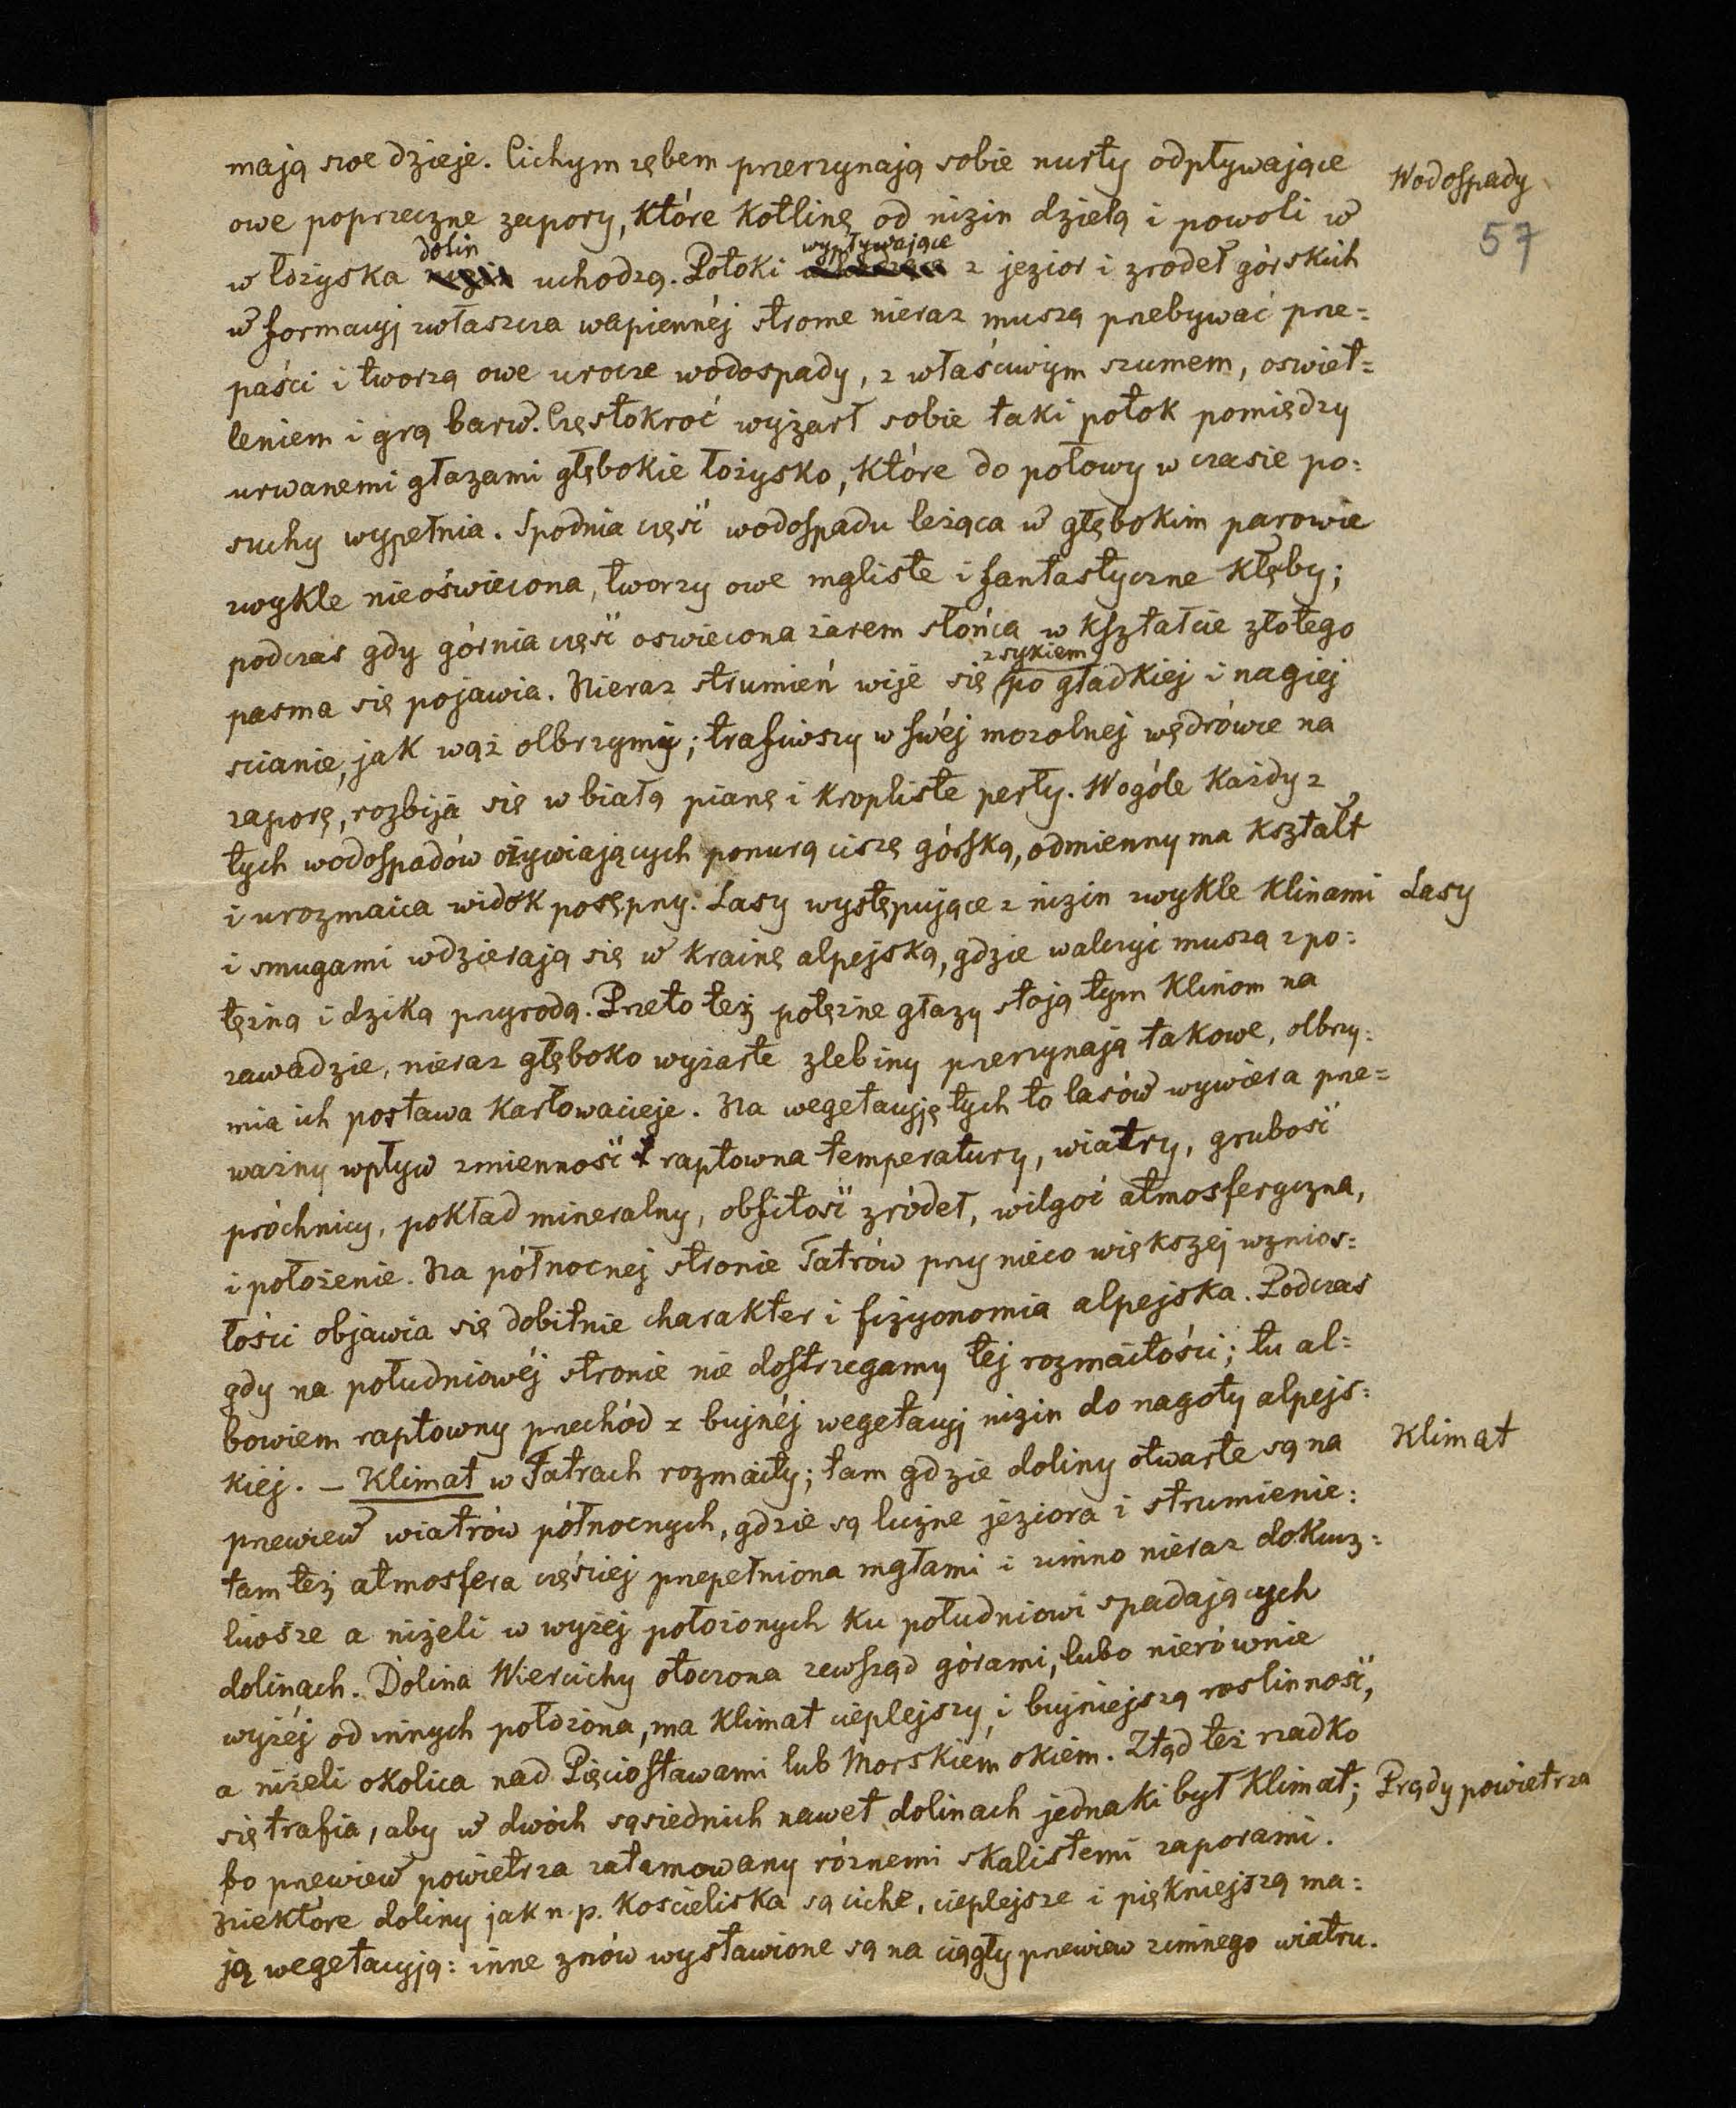 mają swe dzieje. Cichym zębem przerzynają sobie nurty odpływające
Wodospady
57
owe poprzeczne zapory, które kotlinę od nizin dzielą i powoli w
dolin wypływające
w łożyska nizin uchodzą. Potoki z jezior i zrodeł górskich
w formacyj zwłaszcza wapiennéj strome nieraz muszą przebywać prze=
paści i tworzą owe urocze wodospady, z właściwym szumem, oswiet=
leniem i grą barw. Częstokroć wyżarł sobie taki potok pomiędzy
urwanemi głazami głębokie łożysko, które do połowy w czasie po=
suchy wypełnia. Spodnia część wodospadu leżąca w głębokim parowie
zwykle nieoświecona, tworzy owe mgliste i fantastyczne kłęby;
podczas gdy górnia część oswiecona żarem słońca w kształcie złotego
z sykiem
pasma się pojawia. Nieraz strumień wije się po gładkiej i nagiej
scianie, jak wąż olbrzymi; trafiwszy w swéj mozolnej wędrówce na
zaporę, rozbija się w białą pianę i kropliste perły. Wogóle każdy z
tych wodospadów ożywiających ponurą ciszę górską, odmienny ma kształt
i urozmaica widok posępny. Lasy występujące z nizin zwykle klinami
Lasy
i smugami wdzierają się w krainę alpejską, gdzie walczyć muszą z po=
tężną i dziką przyrodą. Przeto też potężne głazy stoją tym klinom na
zawadzie, nieraz głęboko wyżarte zlebiny przerzynają takowe, olbrzy=
mia ich postawa karłowacieje. Na wegetacyję tych to lasów wywiera prze=
ważny wpływ zmienność raptowna temperatury, wiatry, grubość
próchnicy, pokład mineralny, obfitość zródeł, wilgoć atmosferyczna,
i położenie. Na północnej stronie Tatrów przy nieco większej wznios=
łości objawia się dobitnie charakter i fizyonomia alpejska. Podczas
gdy na południowéj stronie nie dostrzegamy téj rozmaitości; tu al=
bowiem raptowny przechód z bujnéj wegetacyj nizin do nagoty alpejs=
kiéj. – Klimat w Tatrach rozmaity; tam gdzie doliny otwarte są na
Klimat
przewiew wiatrów północnych, gdzie są liczne jeziora i strumienie:
tam też atmosfera częściej przepełniona mgłami i zimno nieraz dokucz=
liwsze a niżeli w wyżej położonych ku południowi spadających
dolinach. Dolina Wiercichy otoczona zewsząd górami, lubo nierównie
wyżéj od innych położona, ma klimat cieplejszy i bujniejszą roslinność,
a niżeli okolica nad Pięciostawami lub Morskiem okiem. Ztąd też rzadko
się trafia, aby w dwóch sąsiednich nawet dolinach jednaki był klimat;
Prądy powietrza
bo przewiew powietrza zatamowany różnemi skalistemi zaporami.
Niektóre doliny jak n. p. Kościeliska są ciche, cieplejsze i piękniejszą ma=
ją wegetacyją: inne znów wystawione są na ciągły przewiew zimnego wiatru.